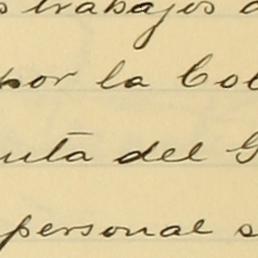 trabajos
por la Col
uta del G
personal s